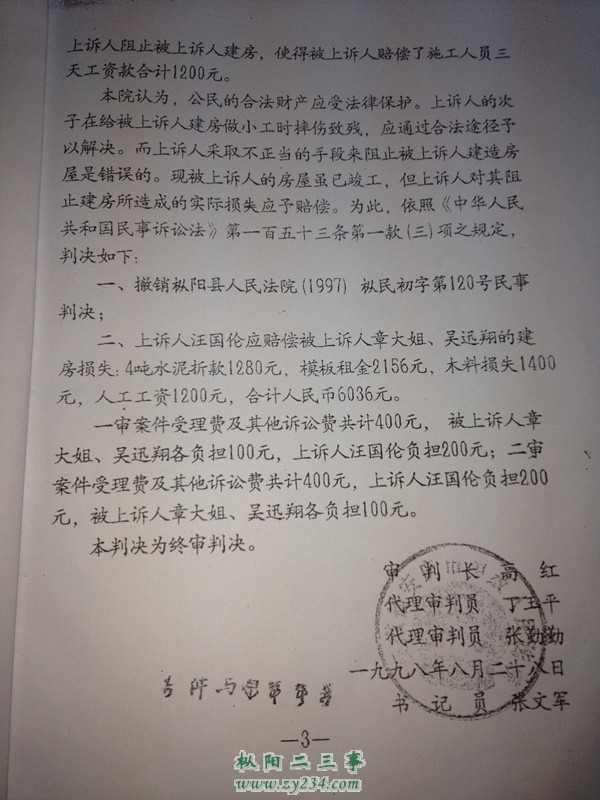 上诉人阻止被上诉人建房，使得被上诉人赔偿了施工人员三
天工资款合计1200元。
本院认为，公民的合法财产应受法律保护。上诉人的次
子在给被上诉人建房做小工时摔伤致残，应通过合法途径予
以解决。而上诉人采取不正当的手段来阻止被上诉人建造房
屋是错误的。现被上诉人的房屋虽已竣工，但上诉人对其阻
止建房所造成的实际损失应予赔偿。为此，依照《中华人民
共和国民事诉讼法》第一百五十三条第一款(三)项之规定，
判决如下：
一、撤销枞阳县人民法院(1997) 枞民初字第120号民事
判决；
二、上诉人汪国伦应赔偿被上诉人章大姐、吴迅翔的建
房损失：4吨水泥折款1280元，模板租金2156元，木料损失1400
元，人工工资1200元，合计人民币6036元。
一审案件受理费及其他诉讼费共计400元， 被上诉人章
大姐、吴迅翔各负担100元，上诉人汪国伦负担200元；二审
案件受理费及其他诉讼费共计400元，上诉人汪国伦负担200
元，被上诉人章大姐、吴迅翔各负担100元。
本判决为终审判决。
审 判 长 高 红
代理审判员 丁玉平
代理审判员 张勤勤
一九九八年八月二十八日
书 记 员 张文军
—3—
枞阳二三事
www.zy234.com